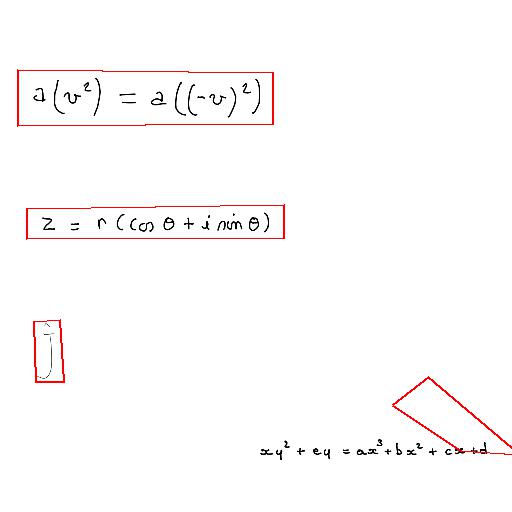 a(v²) = a((-v)²)
z = r(cos θ + i sin θ)
j
xy² + ey = ax³ + bx² + cx + d